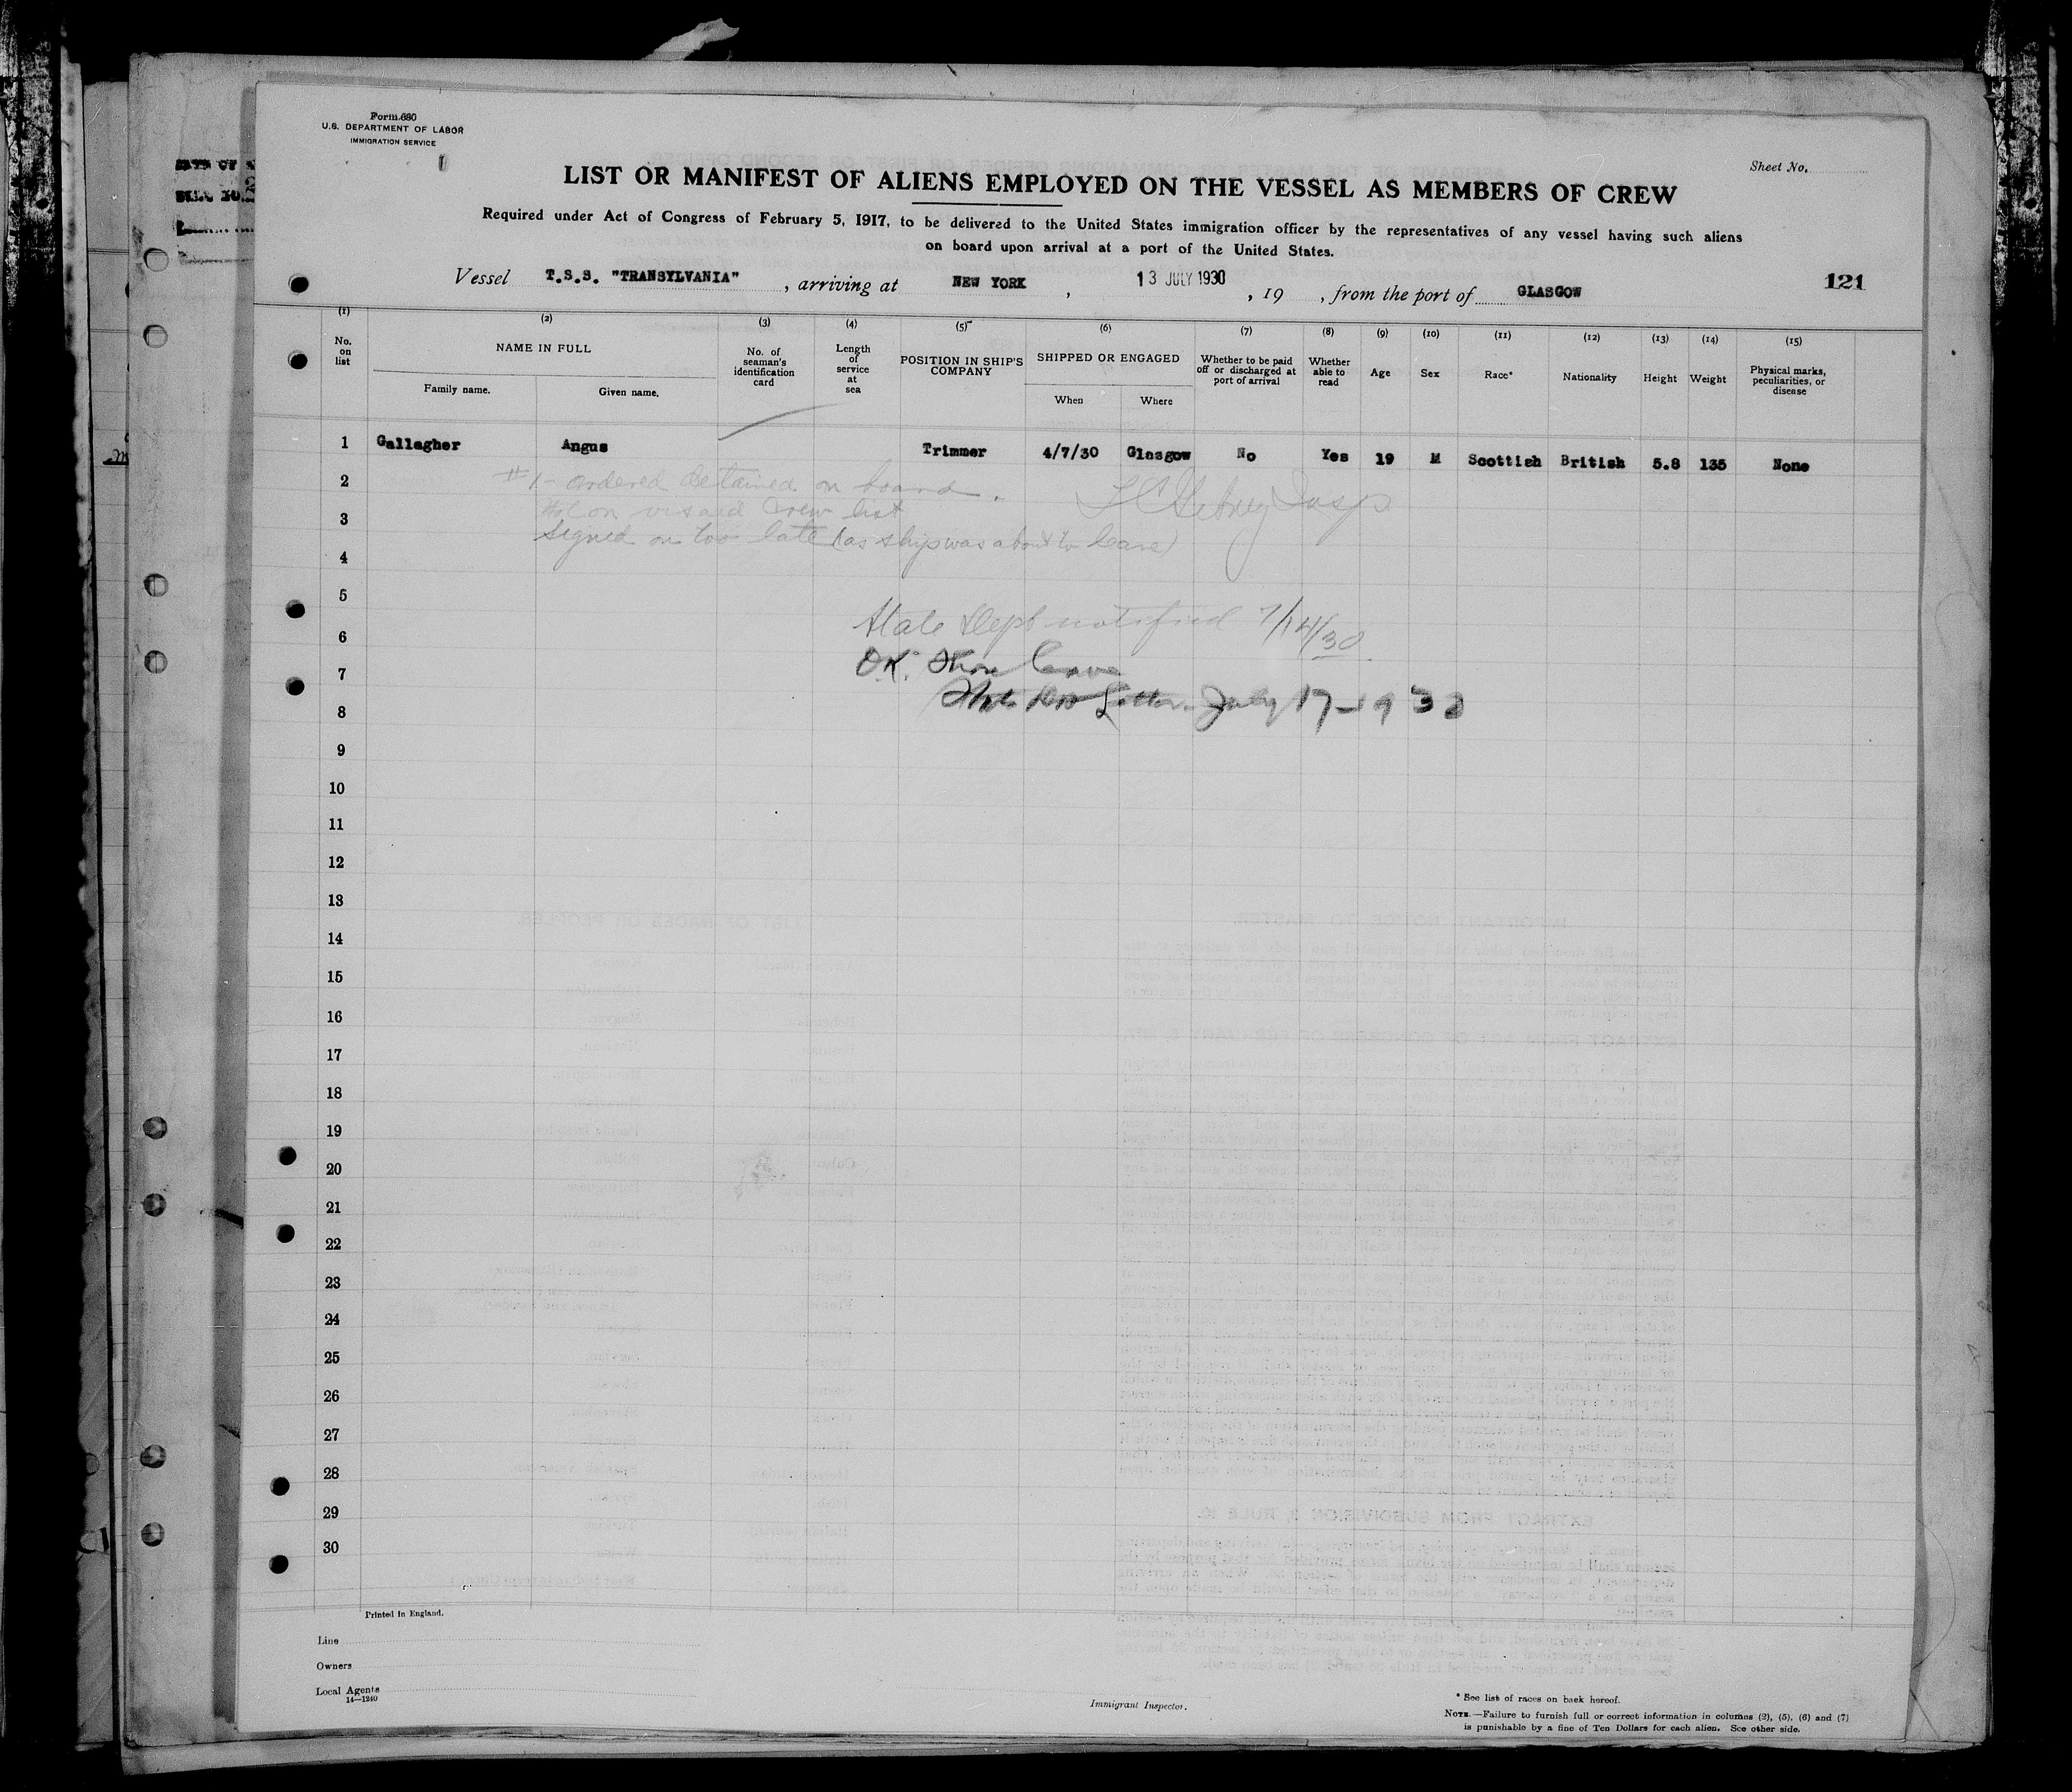 Form 680
U.S. DEPARTMENT OF LABOR
IMMIGRATION SERVICE
Sheet No.
LIST OR MANIFEST OF ALIENS EMPLOYED ON THE VESSEL AS MEMBERS OF CREW
Required under Act of Congress of February 5, 1917, to be delivered to the United States immigration officer by the representatives of any vessel having such aliens
on board upon arrival at a port of the United States.
Vessel T.S.S. "TRANSYLVANIA", arriving at NEW YORK, 13 JULY 1930, 19 , from the port of GLASGOW 121
(1) (2) (3) (4) (5) (6) (7) (8) (9) (10) (11) (12) (13) (14) (15)
No. on list NAME IN FULL Family name. Given name. No. of seaman's identification card Length of service at sea POSITION IN SHIP'S COMPANY SHIPPED OR ENGAGED When Where Whether to be paid off or discharged at port of arrival Whether able to read Age Sex Race* Nationality Height Weight Physical marks, peculiarities, or disease
1 Gallagher Angus Trimmer 4/7/30 Glasgow No Yes 19 M Scottish British 5.8 135 None
2 #1 - ordered detained on board.
3 Not on visaed Crew list
Signed on too late (as ship was about to leave)
4
5
State Dept notified 7/14/30
6
OK. Shore leave
7
State Letter July 17-1930
8
9
10
11
12
13
14
15
16
17
18
19
20
21
22
23
24
25
26
27
28
29
30
Printed in England.
Line
Owners
Local Agents
14—1240
Immigrant Inspector.
* See list of races on back hereof.
NOTE.—Failure to furnish full or correct information in columns (2), (5), (6) and (7)
is punishable by a fine of Ten Dollars for each alien. See other side.